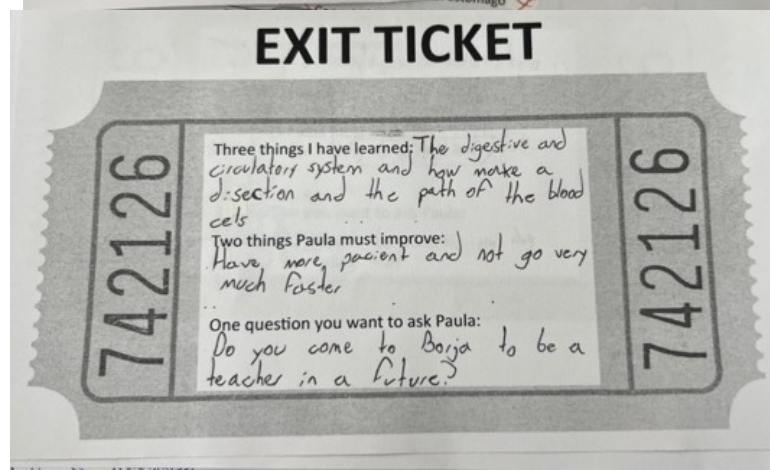 EXIT TICKET
742126
Three things I have learned: The digestive and
circulatory system and how make a
disection and the path of the blood
cels
Two things Paula must improve:
Have more pacient and not go very
much faster
One question you want to ask Paula:
Do you come to Borja to be a
teacher in a future?
742126